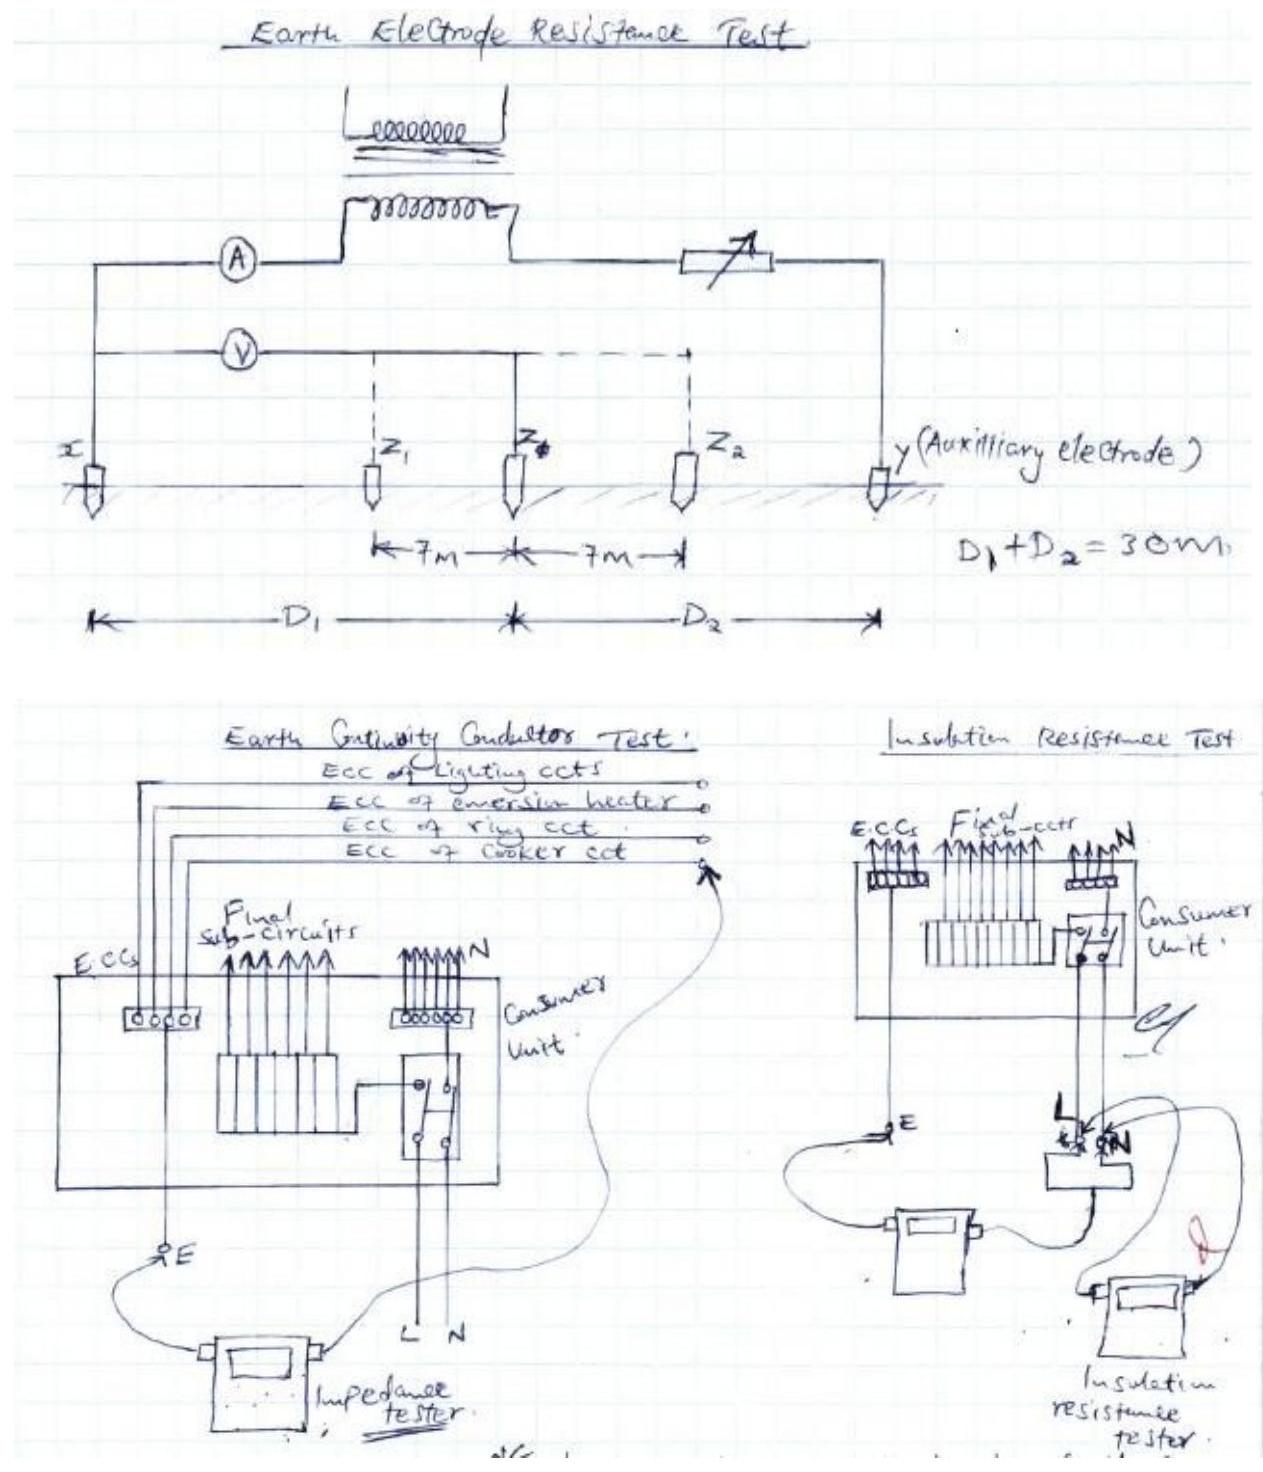 Earth Electrode Resistance Test
A
V
x
Z1
Z
Z2
y (Auxilliary electrode)
7m
7m
D1+D2 = 30m
D1
D2
Earth Continuity Conductor Test
Insulation Resistance Test
ECC of Lighting ccts
ECC of emersion heater
ECC of ring cct
ECC of Cooker cct
Final
sub-circuits
E.CCs
N
Consumer
Unit
E
L N
Impedance
tester
E.C.Cs
Final
sub-ccts
N
Consumer
Unit
E
L
N
Insulation
resistance
tester